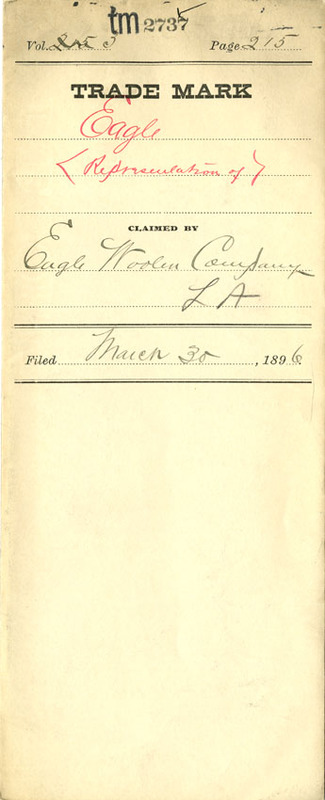 tm 2737
Vol. 3 Page 215
TRADE MARK
Eagle
(Representation of)
CLAIMED BY
Eagle Woolen Company
L A
Filed March 30, 1896